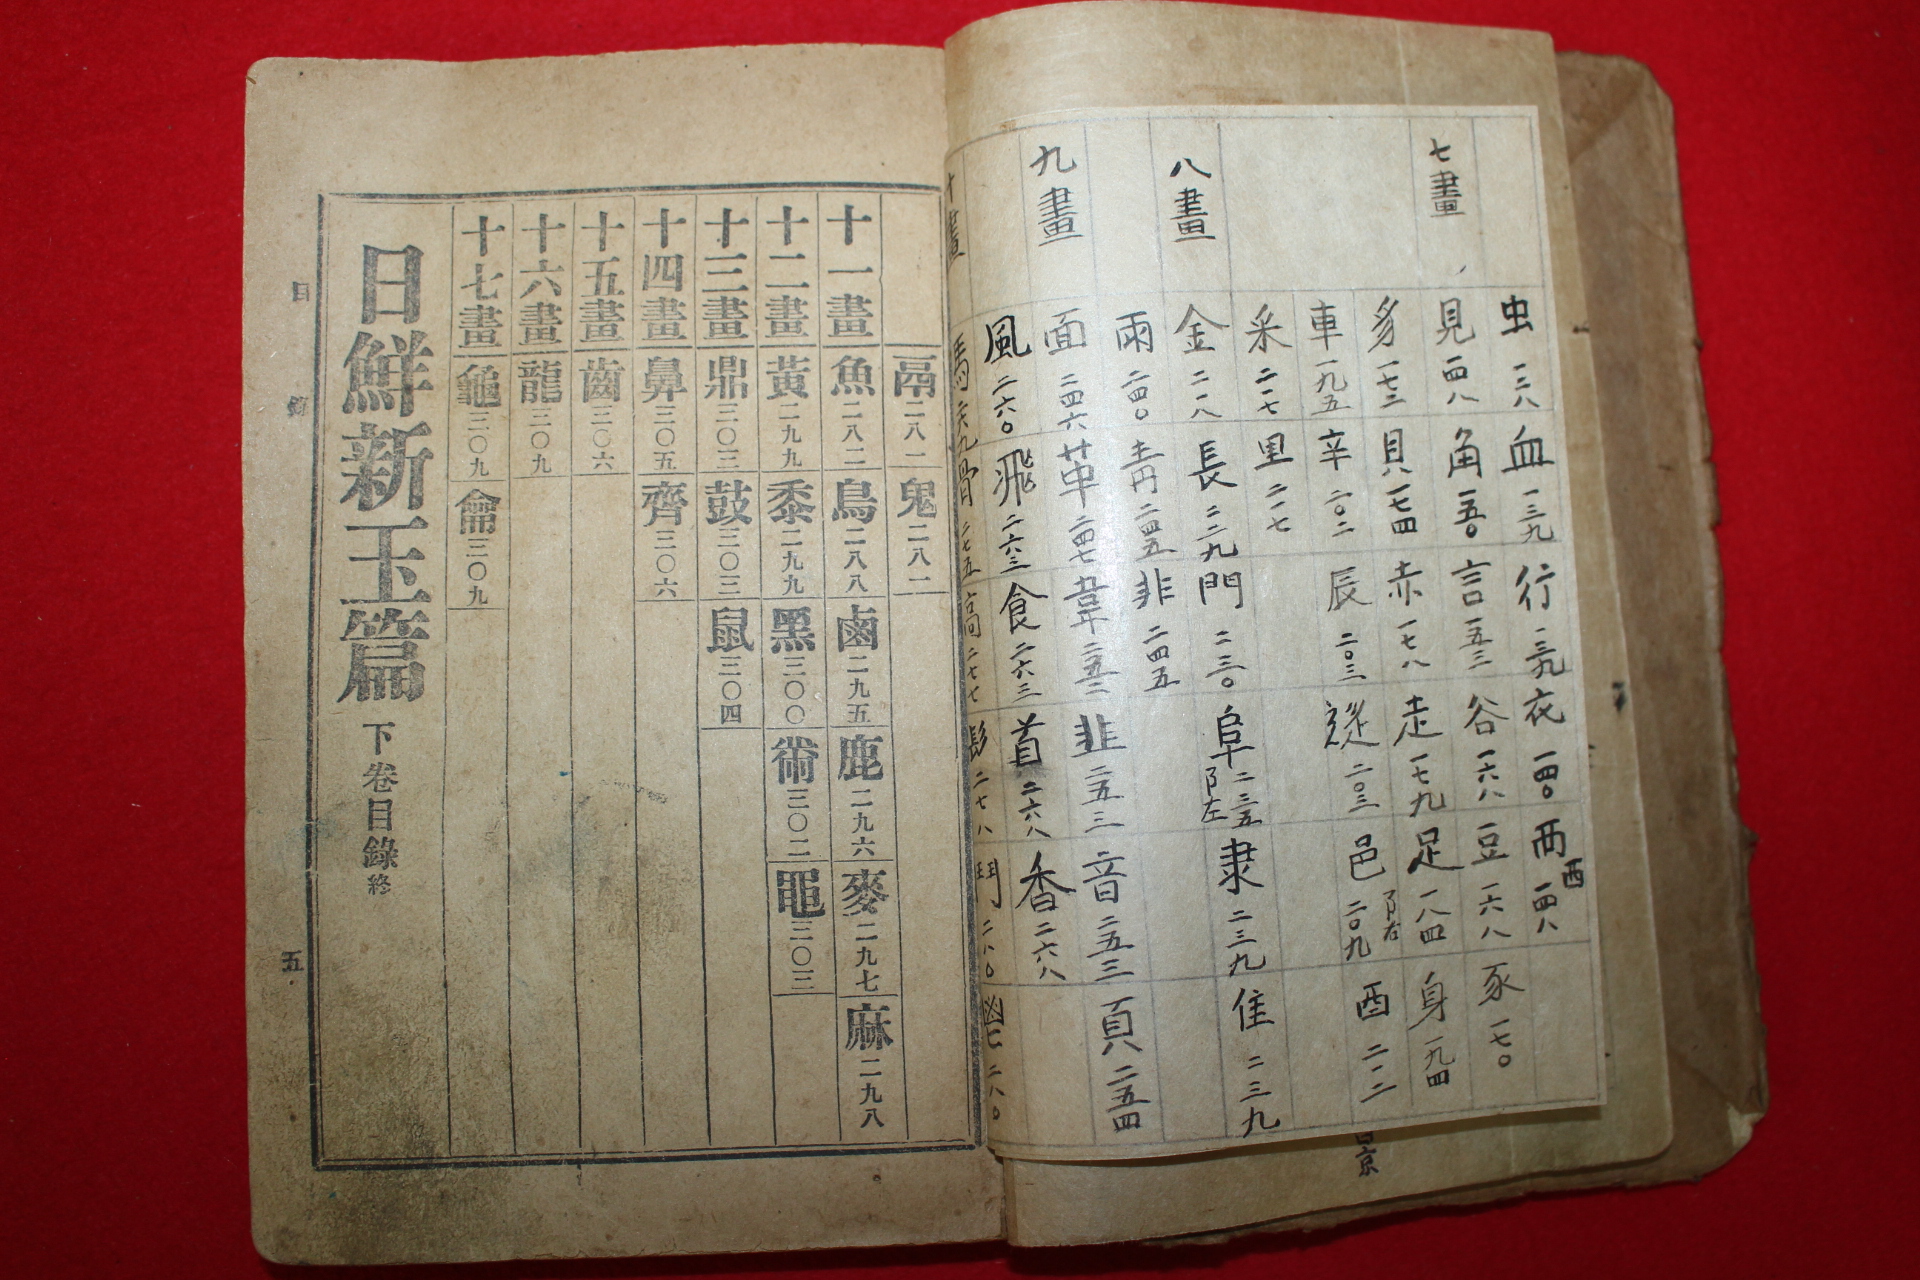 七畫
虫 一三八 血 一三九 行 一三九 衣 一四〇 襾 西 一四八
見 一四八 角 一五〇 言 一五三 谷 一六八 豆 一六八 豕 一七〇
豸 一七三 貝 一七四 赤 一七八 走 一七九 足 一八四 身 一九四
車 一九五 辛 二〇二 辰 二〇三 辵 二〇三 邑 阝右 二〇九 酉 二一二
釆 二一七 里 二一七
八畫
金 二一八 長 二二九 門 二三〇 阜 阝左 二三五 隶 二三九 隹 二三九
雨 二四〇 靑 二四五 非 二四五
九畫
面 二四六 革 二四七 韋 二五二 韭 二五三 音 二五三 頁 二五四
風 二六〇 飛 二六三 食 二六三 首 二六八 香 二六八
十畫
馬 二六九 骨 二七五 高 二七七 髟 二七八 鬥 二八〇 鬯 二八〇
鬲 二八一 鬼 二八一
十一畫 魚 二八二 鳥 二八八 鹵 二九五 鹿 二九六 麥 二九七 麻 二九八
十二畫 黃 二九九 黍 二九九 黑 三〇〇 黹 三〇二 黽 三〇三
十三畫 鼎 三〇三 鼓 三〇三 鼠 三〇四
十四畫 鼻 三〇五 齊 三〇六
十五畫 齒 三〇六
十六畫 龍 三〇九
十七畫 龜 三〇九 龠 三〇九
日鮮新玉篇 下卷目錄 終
目 五
京